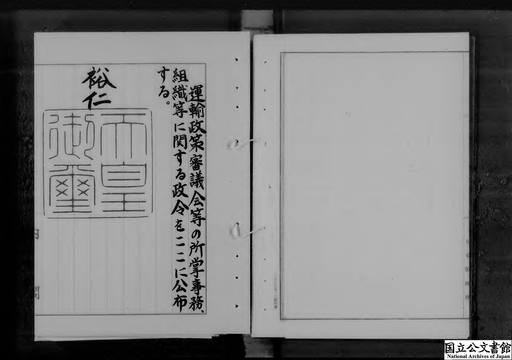 運輸政策審議会等の所掌事務、
組織等に関する政令をここに公布
する。
裕仁
天皇
御璽
国立公文書館
National Archives of Japan